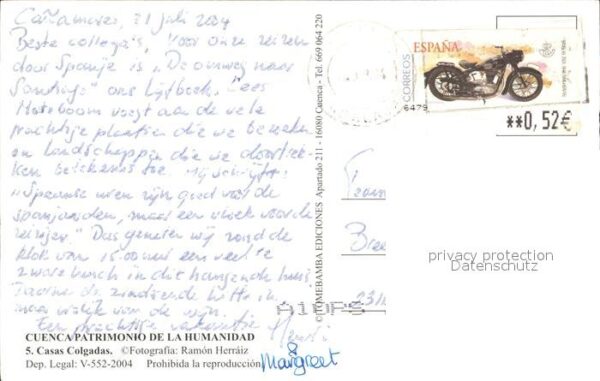 Cañamares, 31 juli 2004
Beste collega's, Voor onze reizen
door Spanje is "De omweg naar
Santiago" ons lijfboek. Cees
Nooteboom voegt aan de vele
prachtige plaatsen die we bezoeken
en landschappen die we doortrek-
ken betekenis toe. Hij schrijft:
"Spaanse uren zijn goed voor de
spanjaarden, maar een vloek voor de
reiziger." Dus genieten wij rond de
klok van 15.00 uur een veel te
zware lunch in dit hangende huis.
Daarna de zinderende hitte in
maar van de wijn.
Een prachtige vakantie
Margreet
CUENCA PATRIMONIO DE LA HUMANIDAD
5. Casas Colgadas. ©Fotografía: Ramón Herráiz
Dep. Legal: V-552-2004 Prohibida la reproducción
©TOMEBAMBA EDICIONES Apartado 211 - 16080 Cuenca - Tel. 669 064 220
ESPAÑA
CORREOS
6479
**0,52€
Bree
privacy protection
Datenschutz